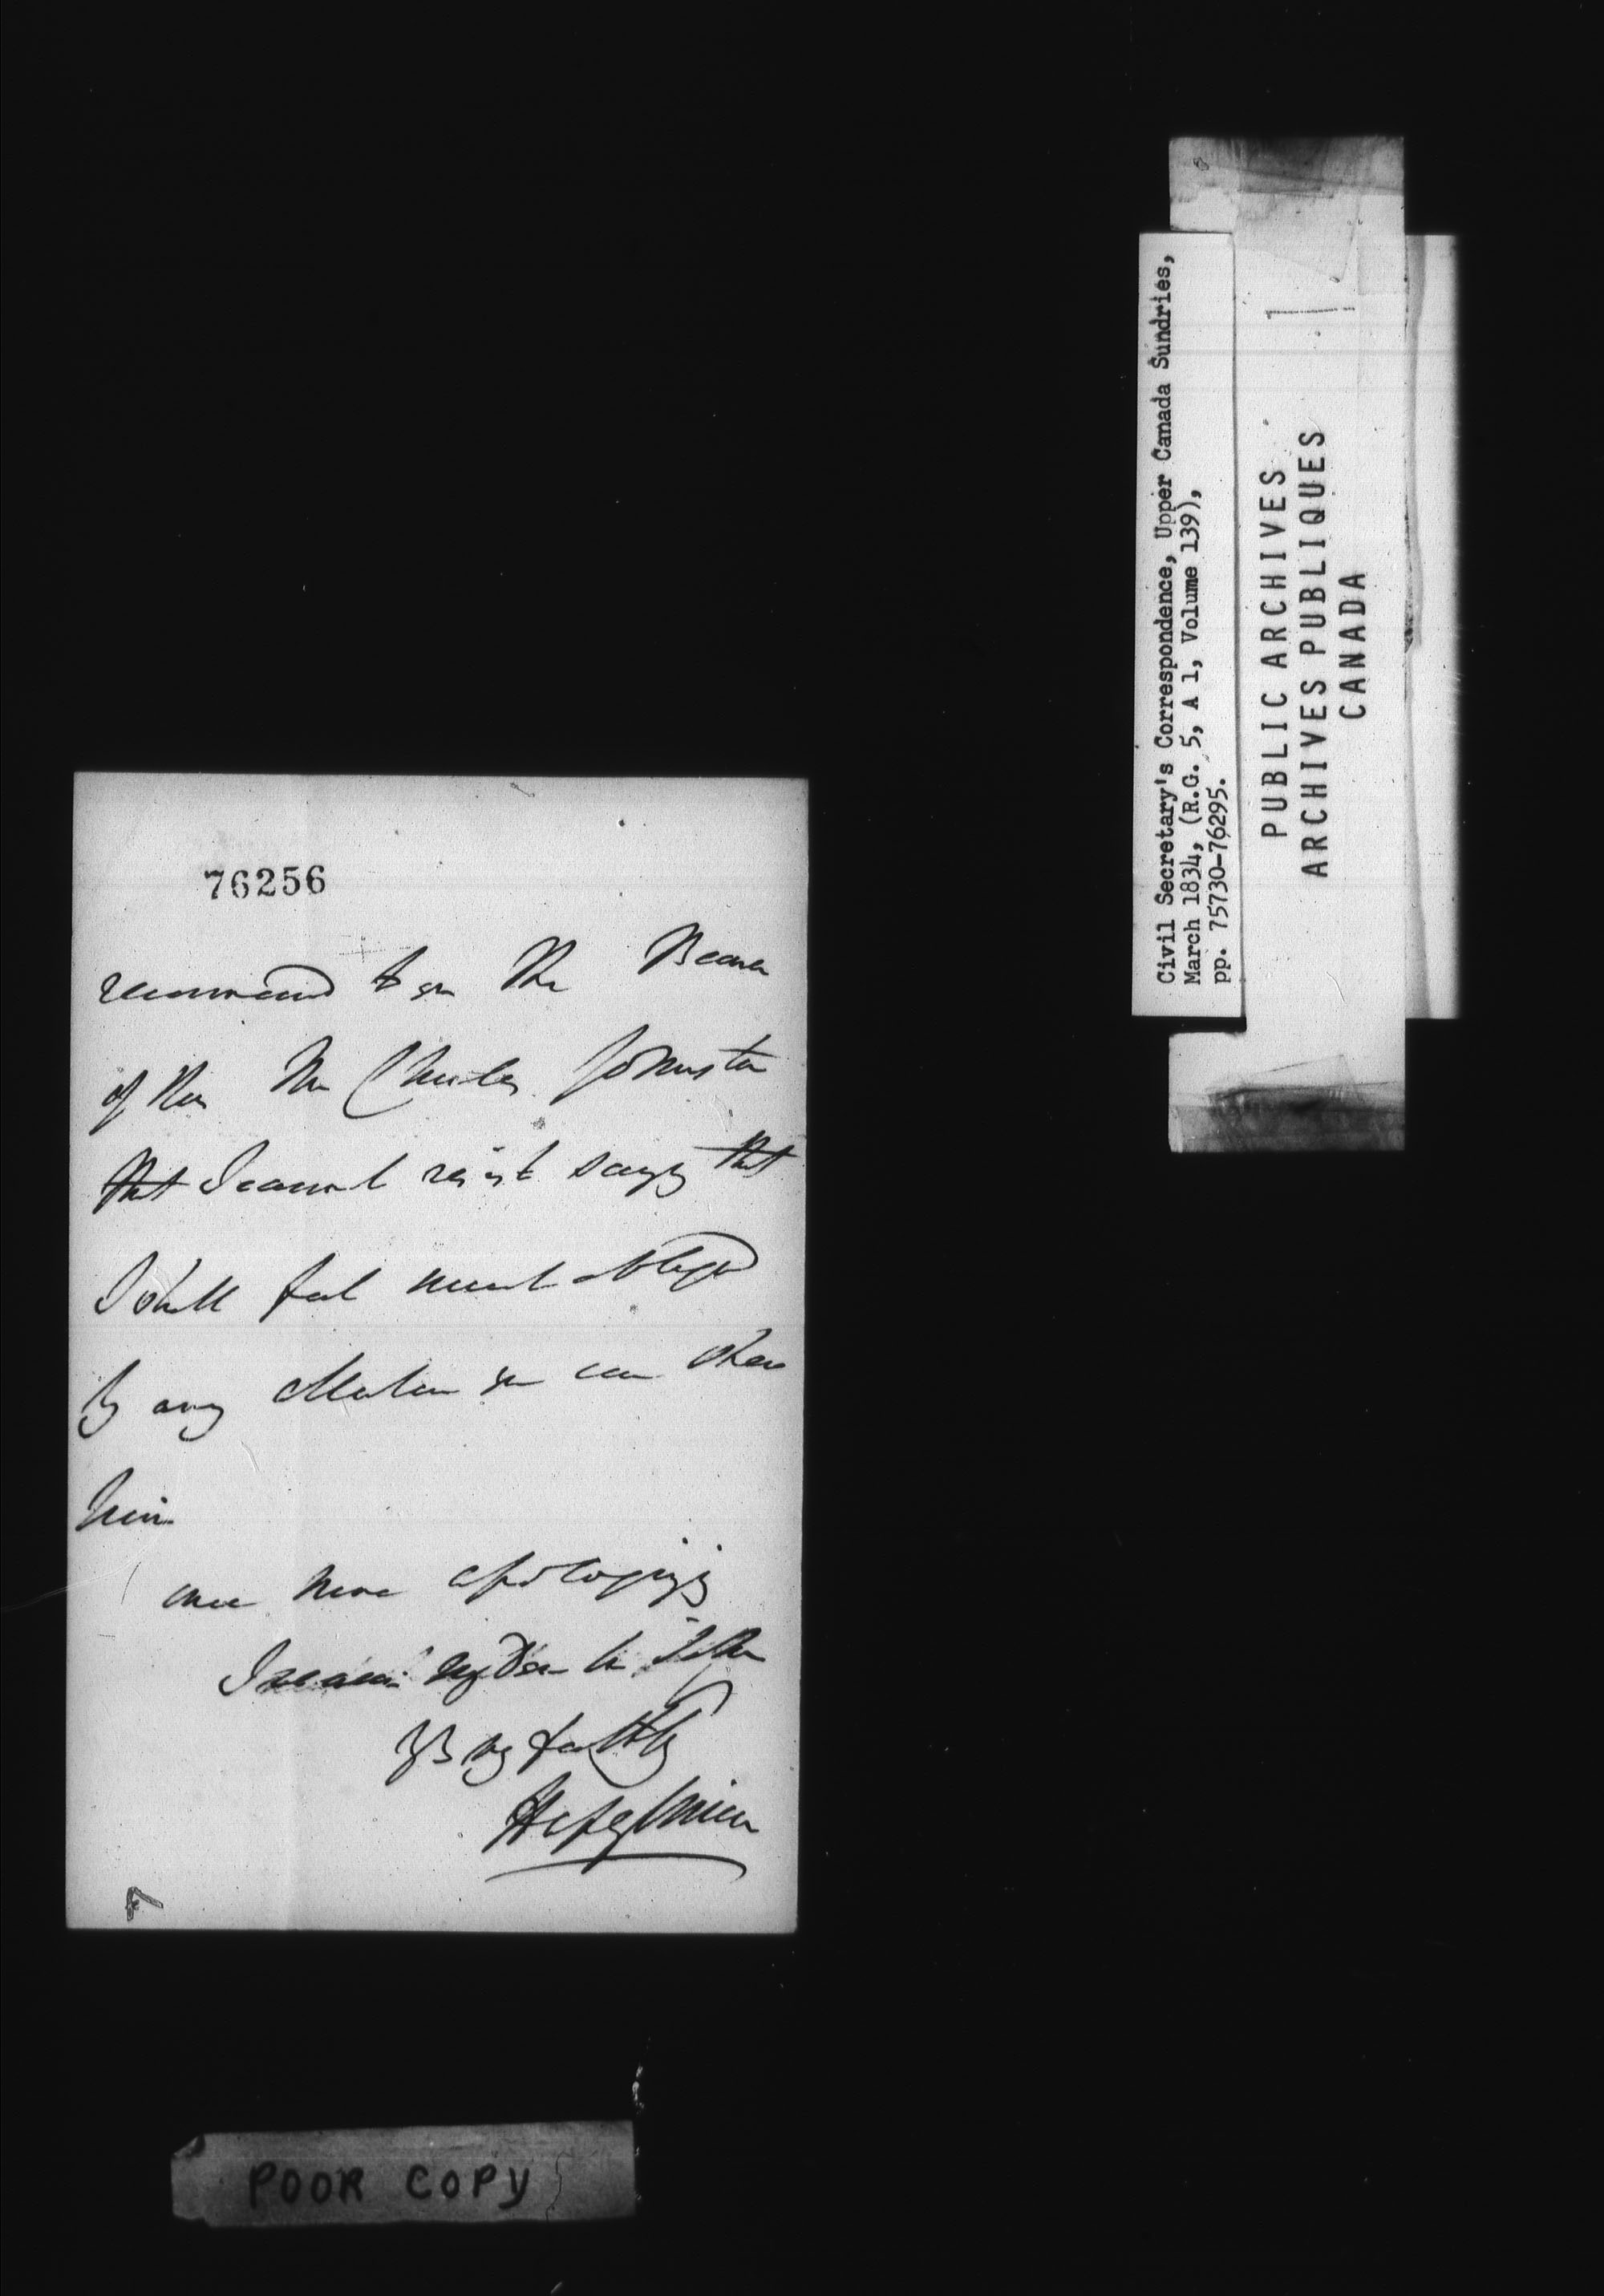 76256
recommend to you the Bearer
of this Mr Charles Johnston
that I cannot resist saying that
I shall feel much obliged
by any attention you can shew
him
once more apologizing
I remain my dear
Yrs very faithfully
POOR COPY
Civil Secretary's Correspondence, Upper Canada Sundries,
March 1834, (R.G. 5, A 1, Volume 139),
pp. 75730-76295.
PUBLIC ARCHIVES
ARCHIVES PUBLIQUES
CANADA